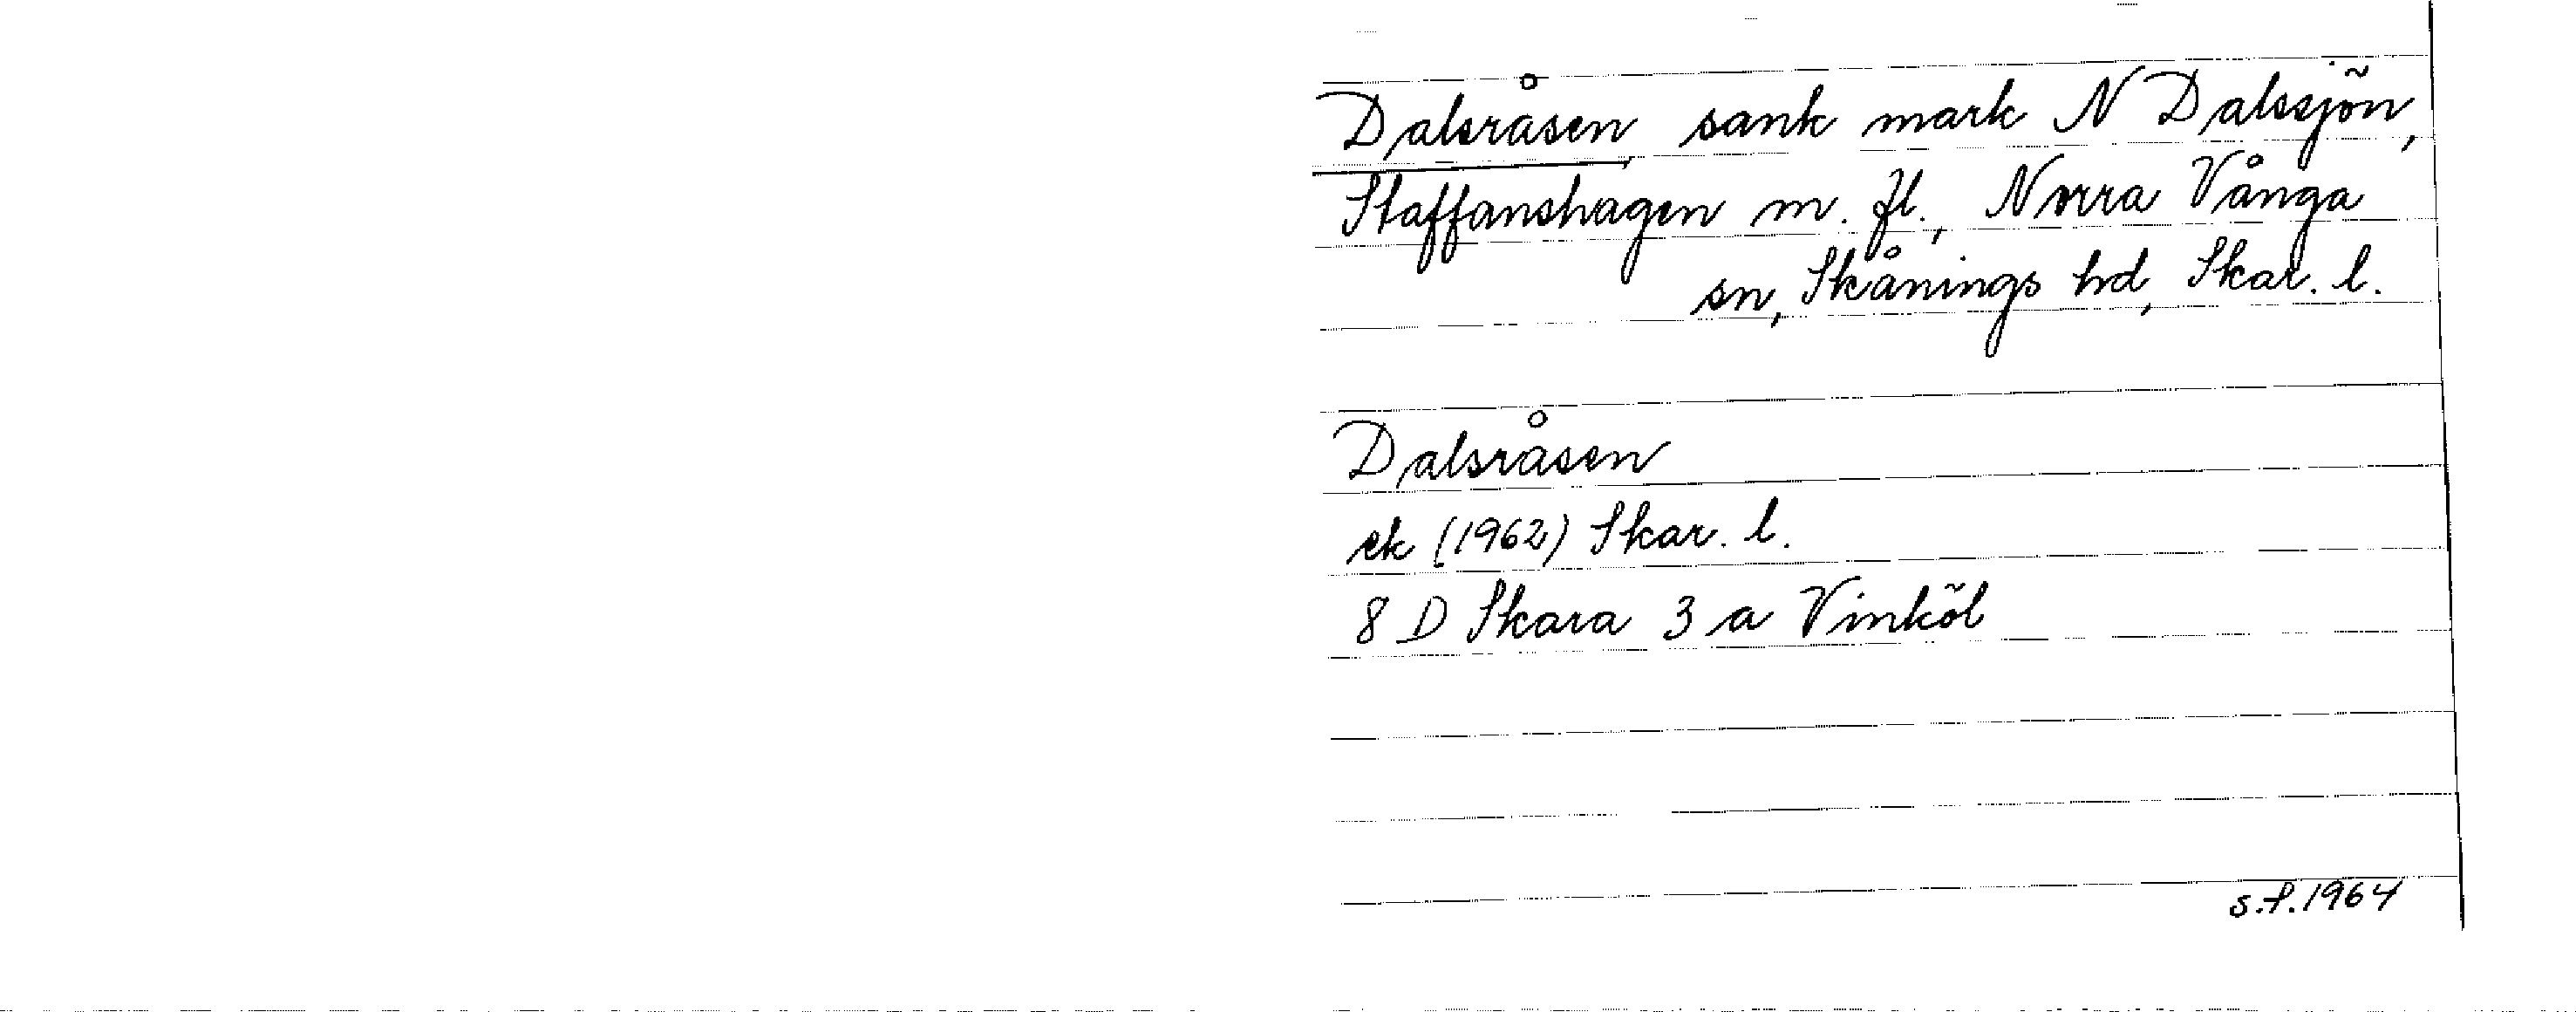 Dalsråsen, sank mark N Dalssjön,
Staffanshagen m. fl., Norra Vånga
sn, Skånings hd, Skar. l.
Dalsråsen
ek (1962) Skar. l.
8 D Skara 3 a Vinköl
s.f. 1964